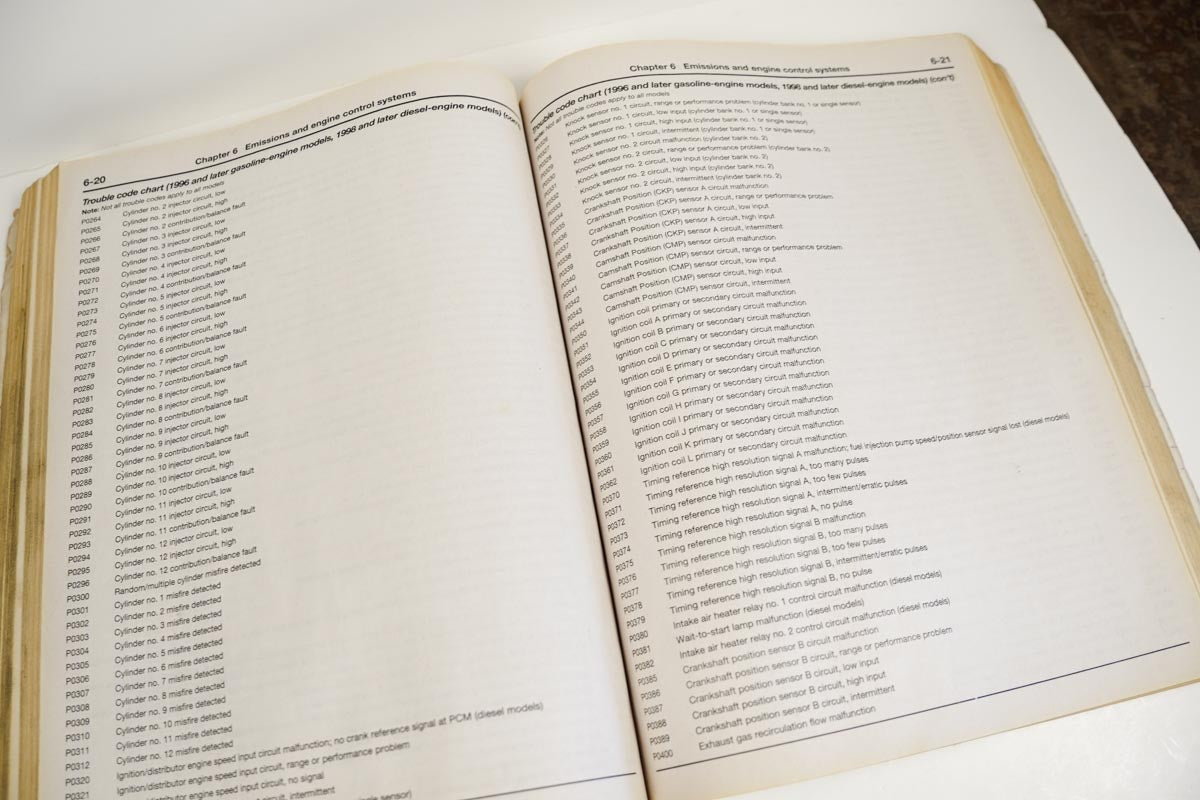 6-20 Chapter 6 Emissions and engine control systems
Trouble code chart (1996 and later gasoline-engine models, 1998 and later diesel-engine models) (con't)
Note: Not all trouble codes apply to all models
P0264 Cylinder no. 2 injector circuit, low
P0265 Cylinder no. 2 injector circuit, high
P0266 Cylinder no. 2 contribution/balance fault
P0267 Cylinder no. 3 injector circuit, low
P0268 Cylinder no. 3 injector circuit, high
P0269 Cylinder no. 3 contribution/balance fault
P0270 Cylinder no. 4 injector circuit, low
P0271 Cylinder no. 4 injector circuit, high
P0272 Cylinder no. 4 contribution/balance fault
P0273 Cylinder no. 5 injector circuit, low
P0274 Cylinder no. 5 injector circuit, high
P0275 Cylinder no. 5 contribution/balance fault
P0276 Cylinder no. 6 injector circuit, low
P0277 Cylinder no. 6 injector circuit, high
P0278 Cylinder no. 6 contribution/balance fault
P0279 Cylinder no. 7 injector circuit, low
P0280 Cylinder no. 7 injector circuit, high
P0281 Cylinder no. 7 contribution/balance fault
P0282 Cylinder no. 8 injector circuit, low
P0283 Cylinder no. 8 injector circuit, high
P0284 Cylinder no. 8 contribution/balance fault
P0285 Cylinder no. 9 injector circuit, low
P0286 Cylinder no. 9 injector circuit, high
P0287 Cylinder no. 9 contribution/balance fault
P0288 Cylinder no. 10 injector circuit, low
P0289 Cylinder no. 10 injector circuit, high
P0290 Cylinder no. 10 contribution/balance fault
P0291 Cylinder no. 11 injector circuit, low
P0292 Cylinder no. 11 injector circuit, high
P0293 Cylinder no. 11 contribution/balance fault
P0294 Cylinder no. 12 injector circuit, low
P0295 Cylinder no. 12 injector circuit, high
P0296 Cylinder no. 12 contribution/balance fault
P0300 Random/multiple cylinder misfire detected
P0301 Cylinder no. 1 misfire detected
P0302 Cylinder no. 2 misfire detected
P0303 Cylinder no. 3 misfire detected
P0304 Cylinder no. 4 misfire detected
P0305 Cylinder no. 5 misfire detected
P0306 Cylinder no. 6 misfire detected
P0307 Cylinder no. 7 misfire detected
P0308 Cylinder no. 8 misfire detected
P0309 Cylinder no. 9 misfire detected
P0310 Cylinder no. 10 misfire detected
P0311 Cylinder no. 11 misfire detected
P0312 Cylinder no. 12 misfire detected
P0320 Ignition/distributor engine speed input circuit malfunction; no crank reference signal at PCM (diesel models)
P0321 Ignition/distributor engine speed input circuit, range or performance problem
distributor engine speed input circuit, no signal
circuit, intermittent
sensor)
Chapter 6 Emissions and engine control systems 6-21
Trouble code chart (1996 and later gasoline-engine models, 1998 and later diesel-engine models) (con't)
Note: Not all trouble codes apply to all models
Knock sensor no. 1 circuit, range or performance problem (cylinder bank no. 1 or single sensor)
Knock sensor no. 1 circuit, low input (cylinder bank no. 1 or single sensor)
Knock sensor no. 1 circuit, high input (cylinder bank no. 1 or single sensor)
Knock sensor no. 1 circuit, intermittent (cylinder bank no. 1 or single sensor)
Knock sensor no. 2 circuit malfunction (cylinder bank no. 2)
Knock sensor no. 2 circuit, range or performance problem (cylinder bank no. 2)
Knock sensor no. 2 circuit, low input (cylinder bank no. 2)
Knock sensor no. 2 circuit, high input (cylinder bank no. 2)
Knock sensor no. 2 circuit, intermittent (cylinder bank no. 2)
Crankshaft Position (CKP) sensor A circuit malfunction
Crankshaft Position (CKP) sensor A circuit, range or performance problem
Crankshaft Position (CKP) sensor A circuit, low input
Crankshaft Position (CKP) sensor A circuit, high input
P0339 Crankshaft Position (CKP) sensor A circuit, intermittent
P0340 Camshaft Position (CMP) sensor circuit malfunction
P0341 Camshaft Position (CMP) sensor circuit, range or performance problem
P0342 Camshaft Position (CMP) sensor circuit, low input
P0343 Camshaft Position (CMP) sensor circuit, high input
P0344 Camshaft Position (CMP) sensor circuit, intermittent
P0350 Ignition coil primary or secondary circuit malfunction
P0351 Ignition coil A primary or secondary circuit malfunction
P0352 Ignition coil B primary or secondary circuit malfunction
P0353 Ignition coil C primary or secondary circuit malfunction
P0354 Ignition coil D primary or secondary circuit malfunction
P0355 Ignition coil E primary or secondary circuit malfunction
P0356 Ignition coil F primary or secondary circuit malfunction
P0357 Ignition coil G primary or secondary circuit malfunction
P0358 Ignition coil H primary or secondary circuit malfunction
P0359 Ignition coil I primary or secondary circuit malfunction
P0360 Ignition coil J primary or secondary circuit malfunction
P0361 Ignition coil K primary or secondary circuit malfunction
P0362 Ignition coil L primary or secondary circuit malfunction
P0370 Timing reference high resolution signal A malfunction; fuel injection pump speed/position sensor signal lost (diesel models)
P0371 Timing reference high resolution signal A, too many pulses
P0372 Timing reference high resolution signal A, too few pulses
P0373 Timing reference high resolution signal A, intermittent/erratic pulses
P0374 Timing reference high resolution signal A, no pulse
P0375 Timing reference high resolution signal B malfunction
P0376 Timing reference high resolution signal B, too many pulses
P0377 Timing reference high resolution signal B, too few pulses
P0378 Timing reference high resolution signal B, intermittent/erratic pulses
P0379 Timing reference high resolution signal B, no pulse
P0380 Intake air heater relay no. 1 control circuit malfunction (diesel models)
P0381 Wait-to-start lamp malfunction (diesel models)
P0382 Intake air heater relay no. 2 control circuit malfunction (diesel models)
P0385 Crankshaft position sensor B circuit malfunction
P0386 Crankshaft position sensor B circuit, range or performance problem
P0387 Crankshaft position sensor B circuit, low input
P0388 Crankshaft position sensor B circuit, high input
P0389 Crankshaft position sensor B circuit, intermittent
P0400 Exhaust gas recirculation flow malfunction